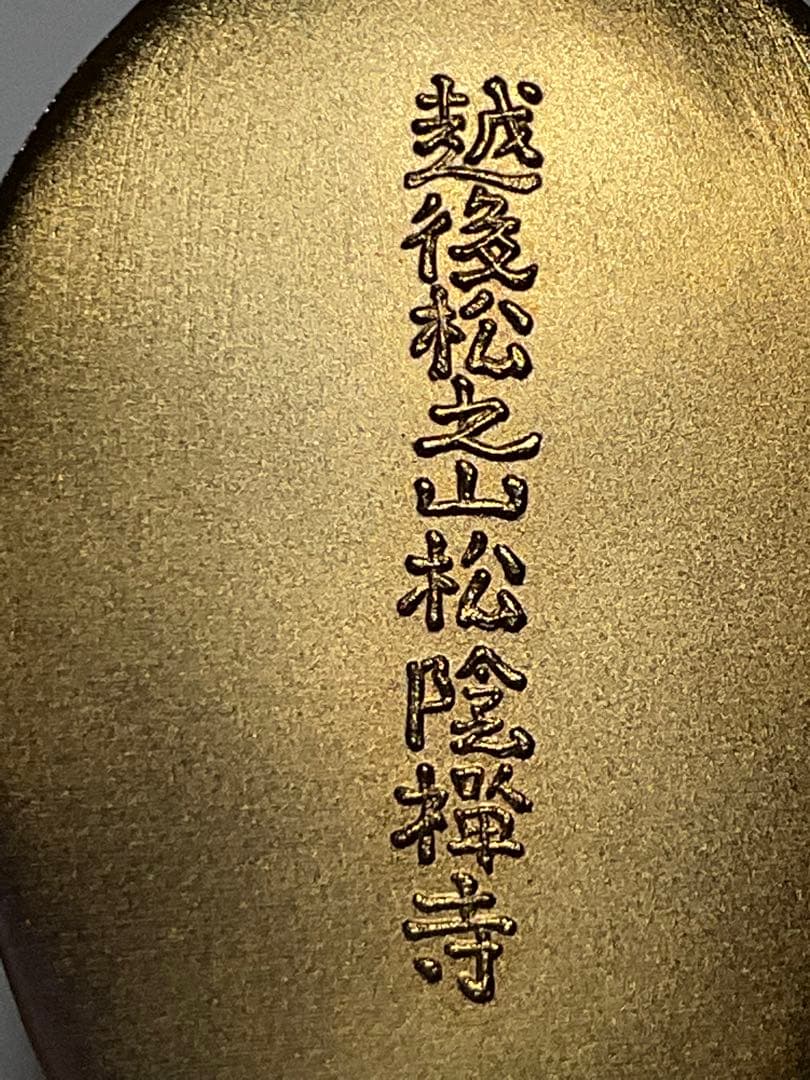 越後松之山松陰禅寺